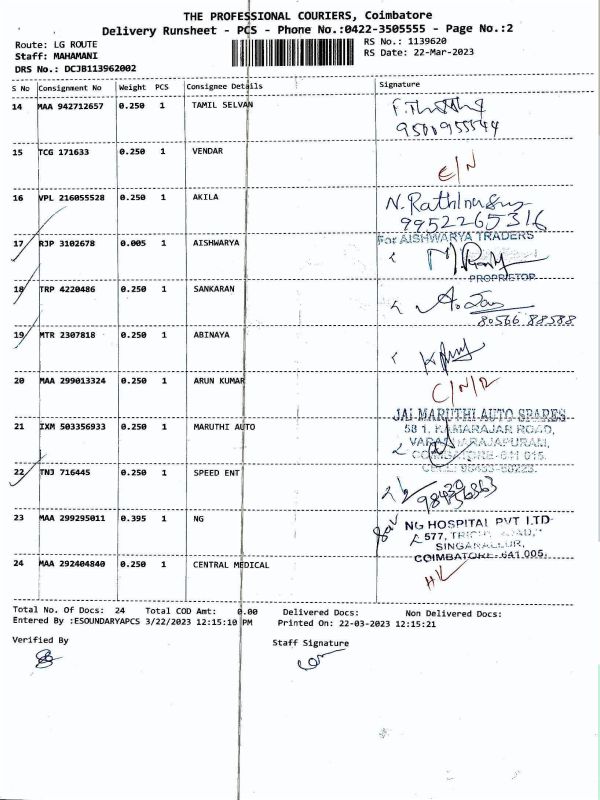 THE PROFESSIONAL COURIERS, Coimbatore
Delivery Runsheet - PCS - Phone No.:0422-3505555 - Page No.:2
Route: LG ROUTE
RS No.: 1139620
Staff: MAHAMANI
RS Date: 22-Mar-2023
DRS No.: DCJB113962002
S No Consignment No Weight PCS Consignee Details Signature
14 MAA 942712657 0.250 1 TAMIL SELVAN
9500955544
15 TCG 171633 0.250 1 VENDAR
E/N
16 VPL 216055528 0.250 1 AKILA
9952265316
17 RJP 3102678 0.005 1 AISHWARYA
For AISHWARYA TRADERS
PROPRIETOR
18 TRP 4220486 0.250 1 SANKARAN
80566 88588
19 MTR 2307818 0.250 1 ABINAYA
20 MAA 299013324 0.250 1 ARUN KUMAR
C/N/R
21 IXM 503356933 0.250 1 MARUTHI AUTO
JAI MARUTHI AUTO SPARES
KAMARAJAR ROAD,
22 TNJ 716445 0.250 1 SPEED ENT
23 MAA 299295011 0.395 1 NG
NG HOSPITAL PVT LTD
577,
SINGANALLUR,
COIMBATORE-641 005.
24 MAA 292404840 0.250 1 CENTRAL MEDICAL
Total No. Of Docs: 24 Total COD Amt: 0.00 Delivered Docs: Non Delivered Docs:
Entered By :ESOUNDARYAPCS 3/22/2023 12:15:10 PM Printed On: 22-03-2023 12:15:21
Verified By
Staff Signature